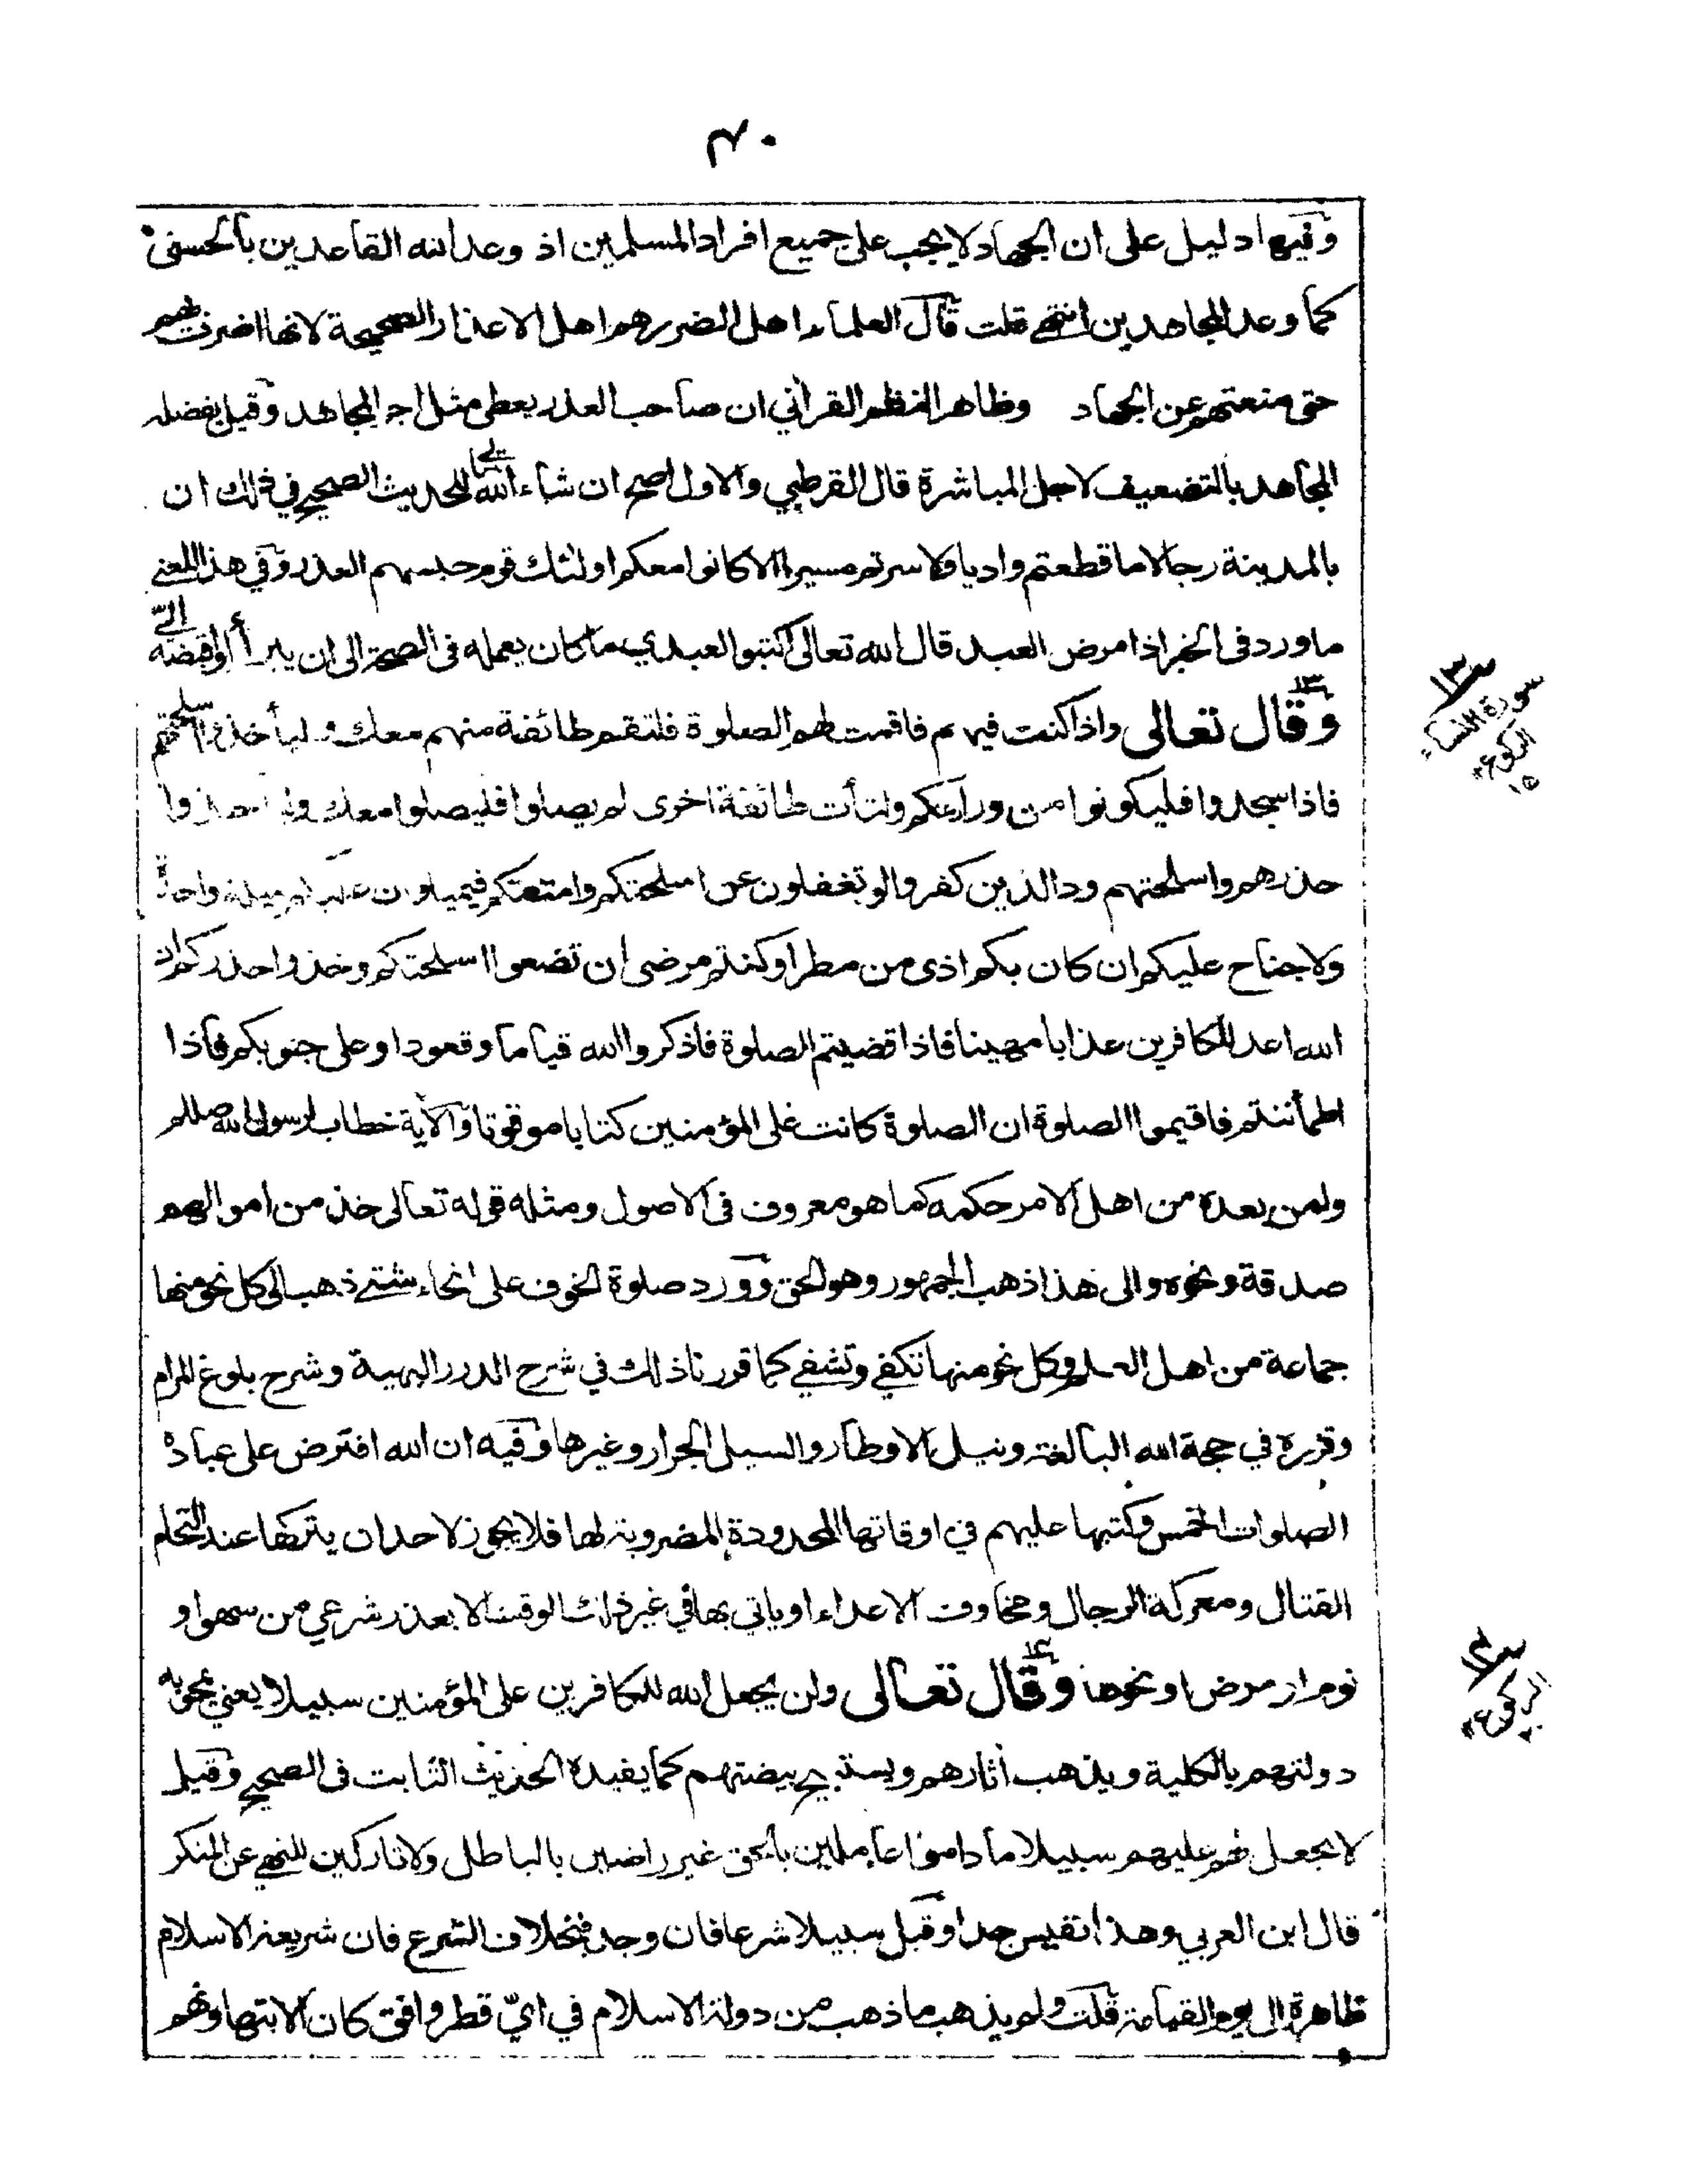 ٤٠
وفيها دليل على ان الجهاد لا يجب على جميع افراد المسلمين اذ وعد الله القاعدين بالحسنى
كما وعد المجاهدين انتهى قلت قال العلماء اهل الضرر هم اهل الاعذار الصحيحة لانها اضرت بهم
حتى منعتهم عن الجهاد وظاهر النظم القرآني ان صاحب العذر يعطى مثل اجر المجاهد وقيل يفضله
المجاهد بالتضعيف لاجل المباشرة قال القرطبي والاول اصح ان شاء الله تعالى للحديث الصحيح في ذلك ان
بالمدينة رجالا ما قطعتم واديا ولا سرتم مسيرا الا كانوا معكم اولئك قوم حبسهم العذر وفي هذا المعنى
ما ورد في الخبر اذا مرض العبد قال الله تعالى اكتبوا لعبدي ما كان يعمله في الصحة الى ان يبرأ او اقبضه الي
وقال تعالى واذا كنت فيهم فاقمت لهم الصلوة فلتقم طائفة منهم معك وليأخذوا اسلحتهم
فاذا سجدوا فليكونوا من ورائكم ولتأت طائفة اخرى لم يصلوا فليصلوا معك وليأخذوا
حذرهم واسلحتهم ود الذين كفروا لو تغفلون عن اسلحتكم وامتعتكم فيميلون عليكم ميلة واحدة
ولا جناح عليكم ان كان بكم اذى من مطر او كنتم مرضى ان تضعوا اسلحتكم وخذوا حذركم ان
الله اعد للكافرين عذابا مهينا فاذا قضيتم الصلوة فاذكروا الله قياما وقعودا وعلى جنوبكم فاذا
اطمأننتم فاقيموا الصلوة ان الصلوة كانت على المؤمنين كتابا موقوتا والآية خطاب لرسول الله صللم
ولمن بعده من اهل الامر حكمه كما هو معروف في الاصول ومثله قوله تعالى خذ من اموالهم
صدقة ونحوه والى هذا ذهب الجمهور وهو الحق وورد صلوة الخوف على انحاء شتى ذهب الى كل نحو منها
جماعة من اهل العلم وكل نحو منها تكفي وتشفي كما قررنا ذلك في شرح الدرر البهية وشرح بلوغ المرام
وقرره في حجة الله البالغة ونيل الاوطار والسيل الجرار وغيرها وفيه ان الله افترض على عباده
الصلوات الخمس وكتبها عليهم في اوقاتها المحدودة المضروبة لها فلا يجوز لاحد ان يتركها عند التحام
القتال ومعركة الرجال ومخاوف الاعداء او ياتي بها في غير ذلك الوقت الا بعذر شرعي من سهو او
نوم او مرض او نحوها وقال تعالى ولن يجعل الله للكافرين على المؤمنين سبيلا يعني يمحو به
دولتهم بالكلية ويذهب آثارهم ويستبيح بيضتهم كما يفيده الحديث الثابت في الصحيح وقيل
لا يجعل لهم عليهم سبيلا ما داموا عاملين بالحق غير راضين بالباطل ولا تاركين للنهي عن المنكر
قال ابن العربي وهذا نفيس جدا وقيل سبيلا شرعا فان وجد فبخلاف الشرع فان شريعة الاسلام
ظاهرة الى يوم القيامة قلت ولم يذهب ما ذهب من دولة الاسلام في اي قطر وافق كان الا بتهاونهم
١٣
سورة النساء
الركوع
١٥
١٤
الركوع